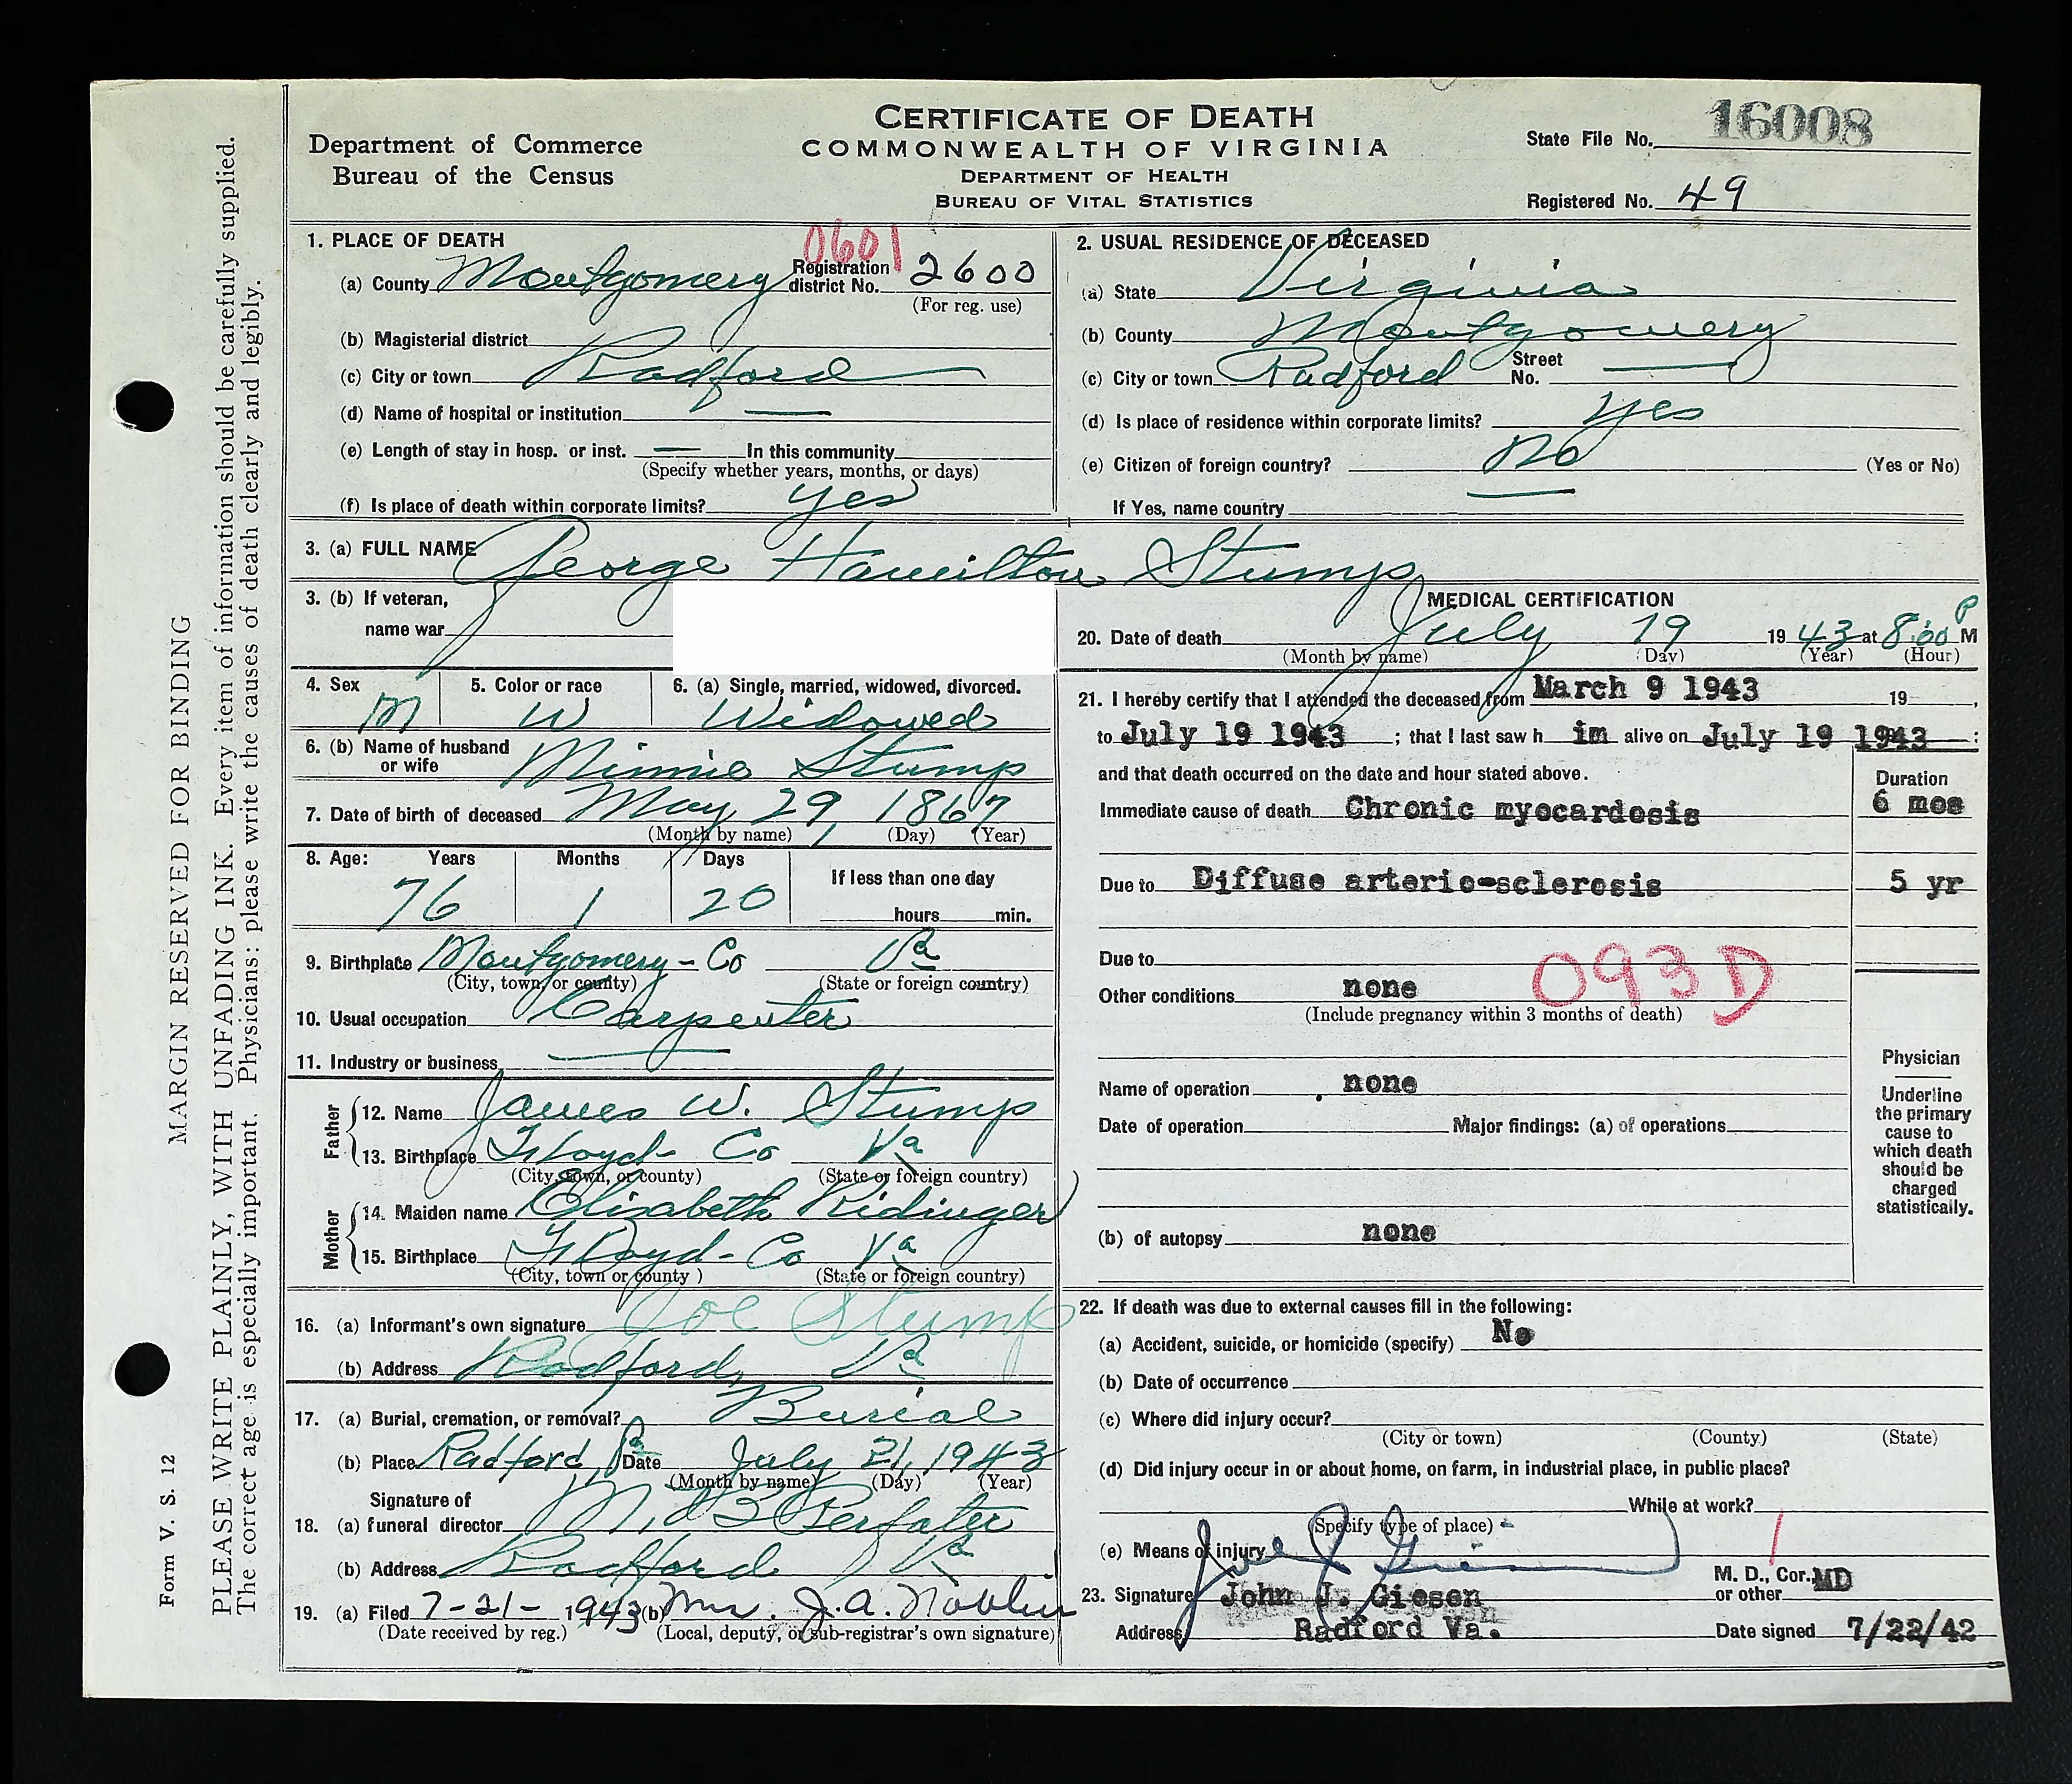 CERTIFICATE OF DEATH
COMMONWEALTH OF VIRGINIA
DEPARTMENT OF HEALTH
BUREAU OF VITAL STATISTICS
Department of Commerce
Bureau of the Census
State File No. 16008
Registered No. 49
MARGIN RESERVED FOR BINDING
PLEASE WRITE PLAINLY, WITH UNFADING INK. Every item of information should be carefully supplied.
The correct age is especially important. Physicians: please write the causes of death clearly and legibly.
Form V. S. 12
1. PLACE OF DEATH
0601
(a) County Montgomery Registration district No. 2600
(For reg. use)
(b) Magisterial district
(c) City or town Radford
(d) Name of hospital or institution —
(e) Length of stay in hosp. or inst. — In this community
(Specify whether years, months, or days)
(f) Is place of death within corporate limits? yes
2. USUAL RESIDENCE OF DECEASED
(a) State Virginia
(b) County Montgomery
(c) City or town Radford Street No. —
(d) Is place of residence within corporate limits? yes
(e) Citizen of foreign country? No (Yes or No)
If Yes, name country —
3. (a) FULL NAME George Hamilton Stump
3. (b) If veteran,
name war
4. Sex M
5. Color or race W
6. (a) Single, married, widowed, divorced. Widowed
6. (b) Name of husband or wife Minnie Stump
7. Date of birth of deceased May 29, 1867
(Month by name) (Day) (Year)
8. Age: Years Months Days If less than one day
76 1 20 hours min.
9. Birthplace Montgomery-Co Va
(City, town, or county) (State or foreign country)
10. Usual occupation Carpenter
11. Industry or business —
Father
12. Name James W. Stump
13. Birthplace Floyd-Co Va
(City, town, or county) (State or foreign country)
Mother
14. Maiden name Elizabeth Ridinger
15. Birthplace Floyd-Co Va
(City, town or county ) (State or foreign country)
16. (a) Informant's own signature Joe Stump
(b) Address Radford, Va
17. (a) Burial, cremation, or removal? Burial
(b) Place Radford Va Date July 21, 1943
(Month by name) (Day) (Year)
Signature of
18. (a) funeral director
(b) Address Radford, Va
19. (a) Filed 7-21- 1943 (b) Mrs. J.A. Noblin
(Date received by reg.) (Local, deputy, or sub-registrar's own signature)
MEDICAL CERTIFICATION
20. Date of death July 19 1943 at 8:00 P M
(Month by name) (Day) (Year) (Hour)
21. I hereby certify that I attended the deceased from March 9 1943 19 ,
to July 19 1943 ; that I last saw h im alive on July 19 1943 :
and that death occurred on the date and hour stated above.
Duration
Immediate cause of death Chronic myocardosis 6 mos
Due to Diffuse arterio-sclerosis 5 yr
Due to
093D
Other conditions none
(Include pregnancy within 3 months of death)
Name of operation none
Date of operation Major findings: (a) of operations
(b) of autopsy none
Physician
Underline
the primary
cause to
which death
should be
charged
statistically.
22. If death was due to external causes fill in the following:
(a) Accident, suicide, or homicide (specify) No
(b) Date of occurrence
(c) Where did injury occur?
(City or town) (County) (State)
(d) Did injury occur in or about home, on farm, in industrial place, in public place?
While at work?
(Specify type of place)
(e) Means of injury
23. Signature John J. Giesen M. D., Cor. or other MD
Address Radford Va. Date signed 7/22/42